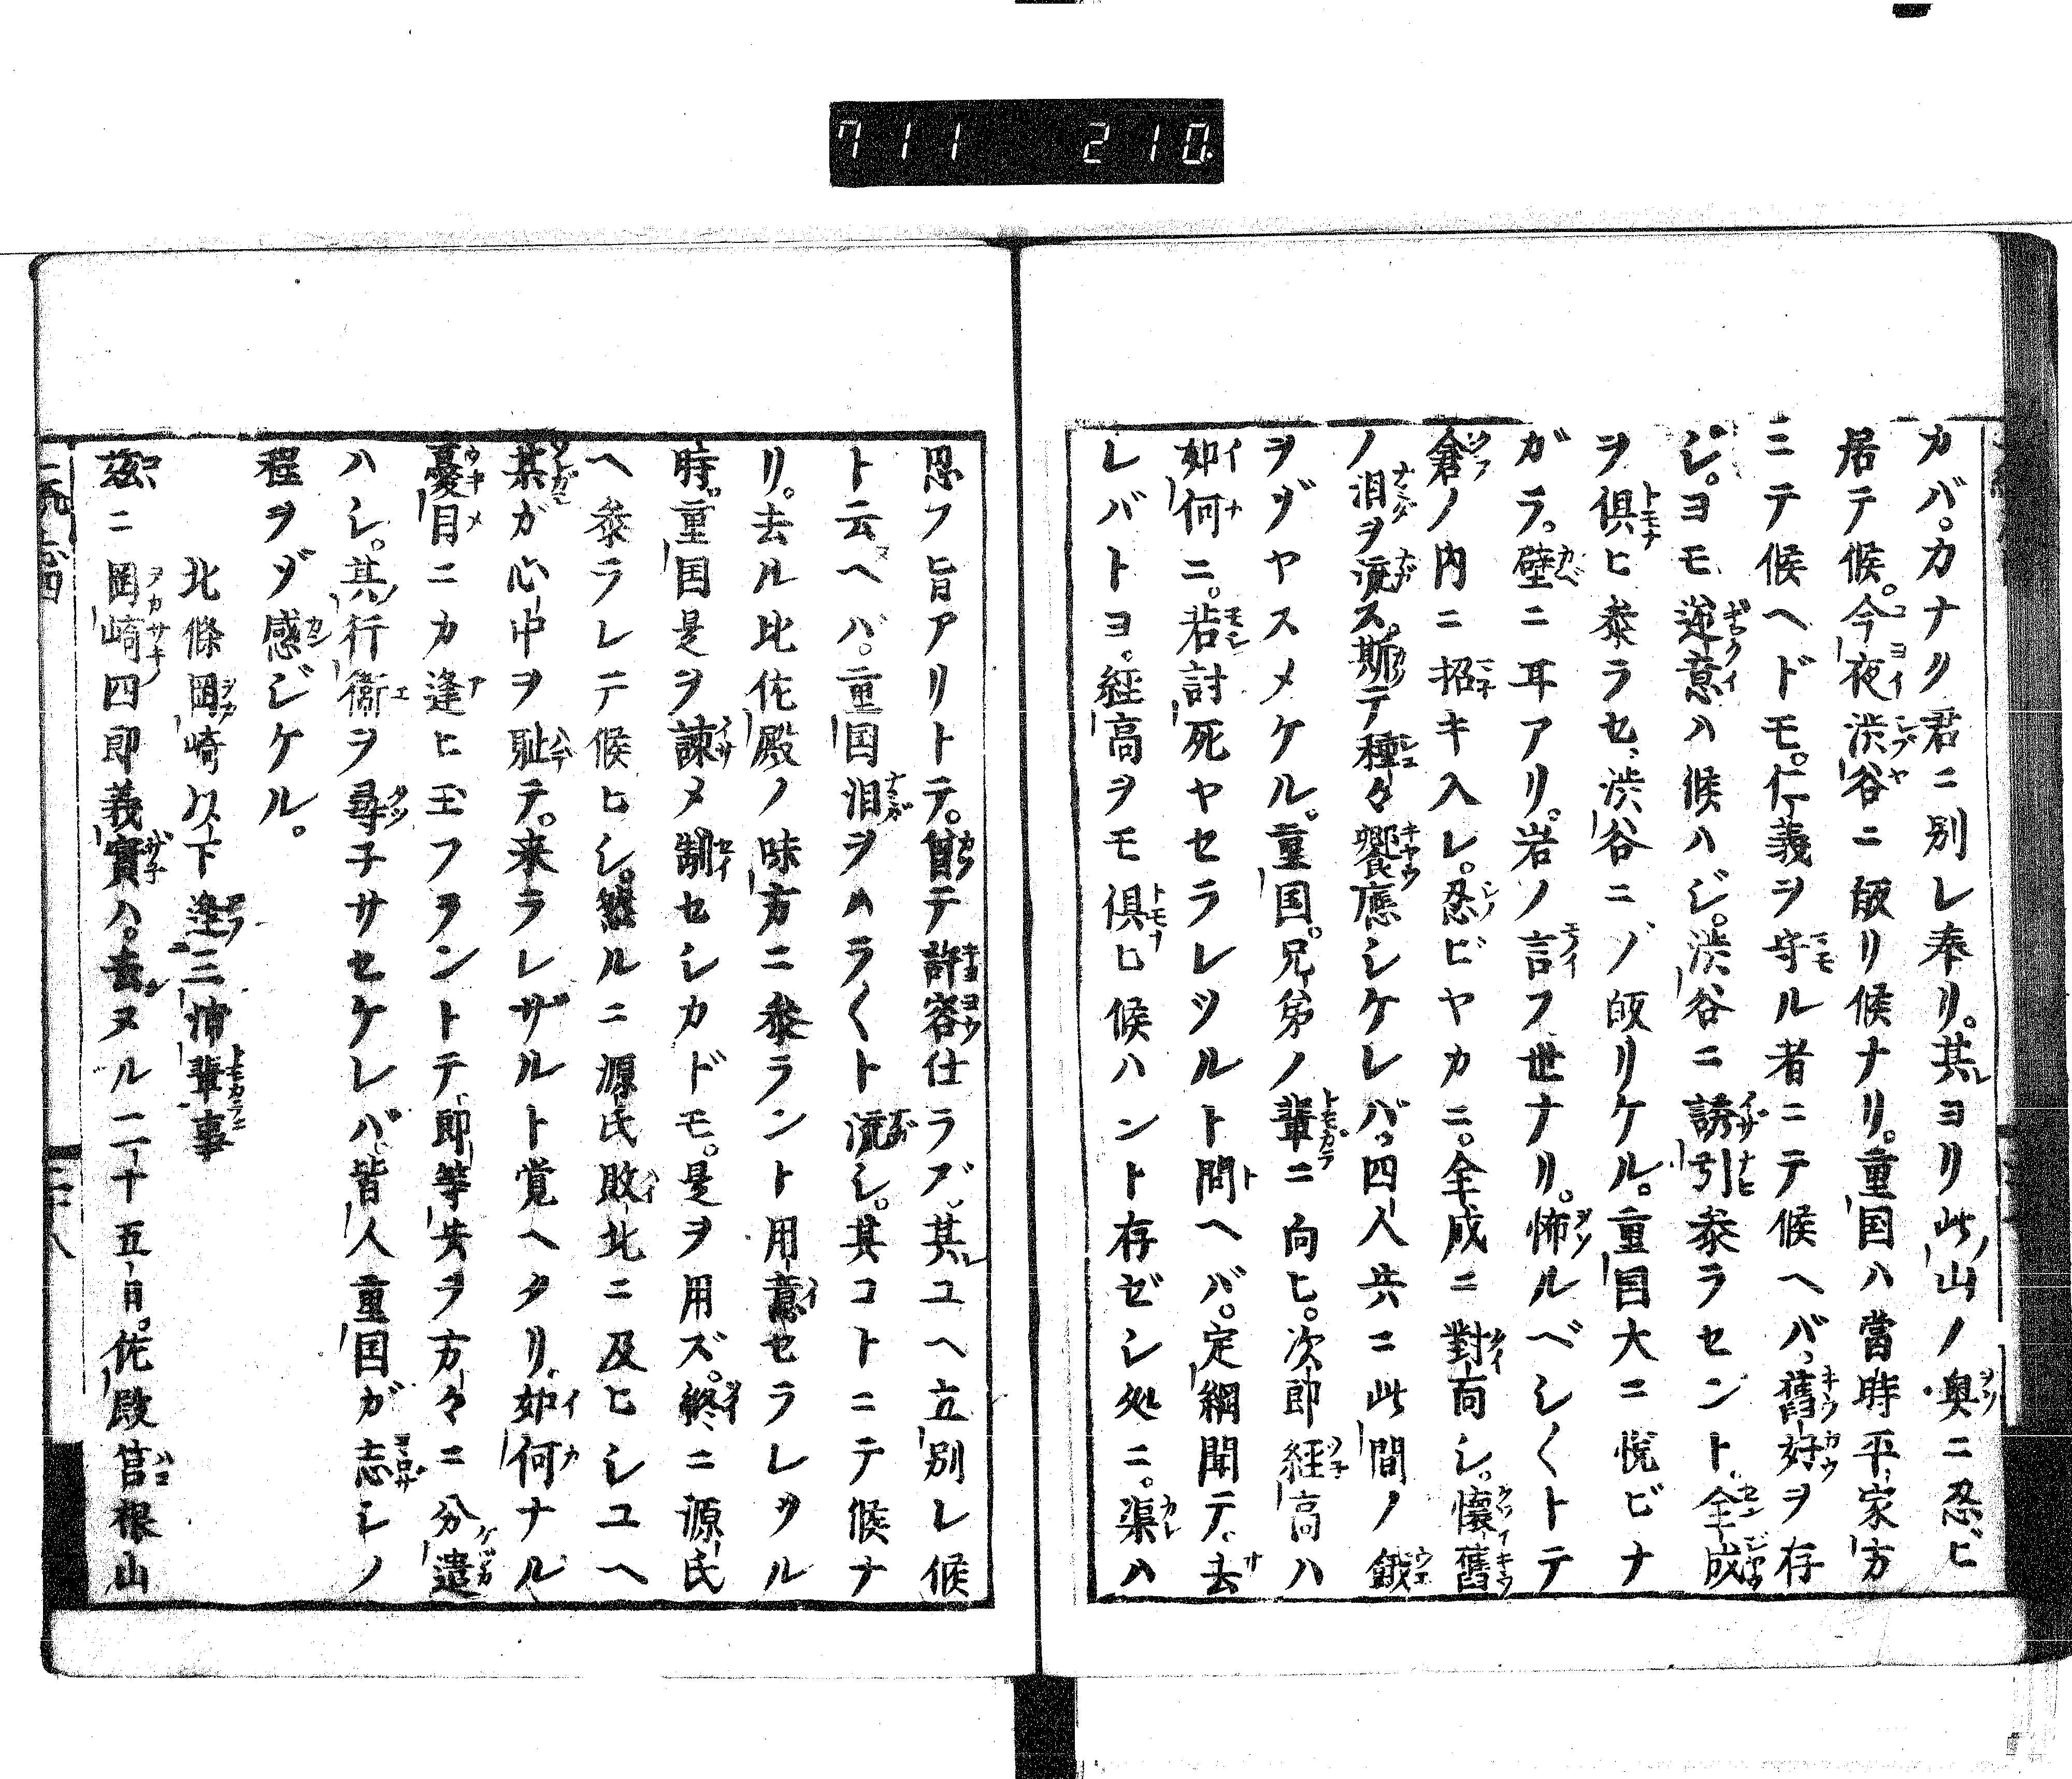 711 210.
カバ。カナク君ニ別レ奉リ。其ヨリ此山ノ奥ニ忍ビ
居テ候。今夜渋谷ニ皈リ候ナリ。重国ハ當時平家方
ニテ候ヘドモ。仁義ヲ守ル者ニテ候ヘバ、舊好ヲ存
ジ。ヨモ逆意ハ候ハジ。渋谷ニ誘引參ラセント、全成
ヲ倶ヒ參ラセ、渋谷ニゾ皈リケル。重国大ニ悦ビナ
ガラ。壁ニ耳アリ。岩ノ言フ世ナリ。怖ルベシ〱トテ
倉ノ内ニ招キ入レ。忍ビヤカニ。全成ニ對向シ。懐舊
ノ泪ヲ流ス。斯テ種々饗應シケレバ、四人共ニ此間ノ餓
ヲゾヤスメケル。重国。兄弟ノ輩ニ向ヒ。次郎経高ハ
如何ニ。若討死ヤセラレツルト問ヘバ。定綱聞テ、去
レバトヨ。経高ヲモ倶ヒ候ハント存ゼシ処ニ。渠ハ
思フ旨アリトテ。曽テ許容仕ラズ。其ユヘ立別レ候
ト云ヘバ。重国泪ヲハラ〱ト流シ。其コトニテ候ナ
リ。去ル比佐殿ノ味方ニ參ラント用意セラレツル
時。重国是ヲ諫メ制セシカドモ。是ヲ用ズ。終ニ源氏
ヘ參ラレテ候ヒシ。然ルニ源氏敗北ニ及ヒシユヘ
某ガ心中ヲ耻テ。来ラレザルト覚ヘタリ。如何ナル
憂目ニカ逢ヒ玉フラントテ、郎等共ヲ方々ニ分遣
ハシ。其行衛ヲ尋子サセケレバ、皆人重国ガ志シノ
程ヲゾ感ジケル。
北條岡崎以下逢三浦輩事
茲ニ岡崎四郎義實ハ。去ヌル二十五日。佐殿筥根山